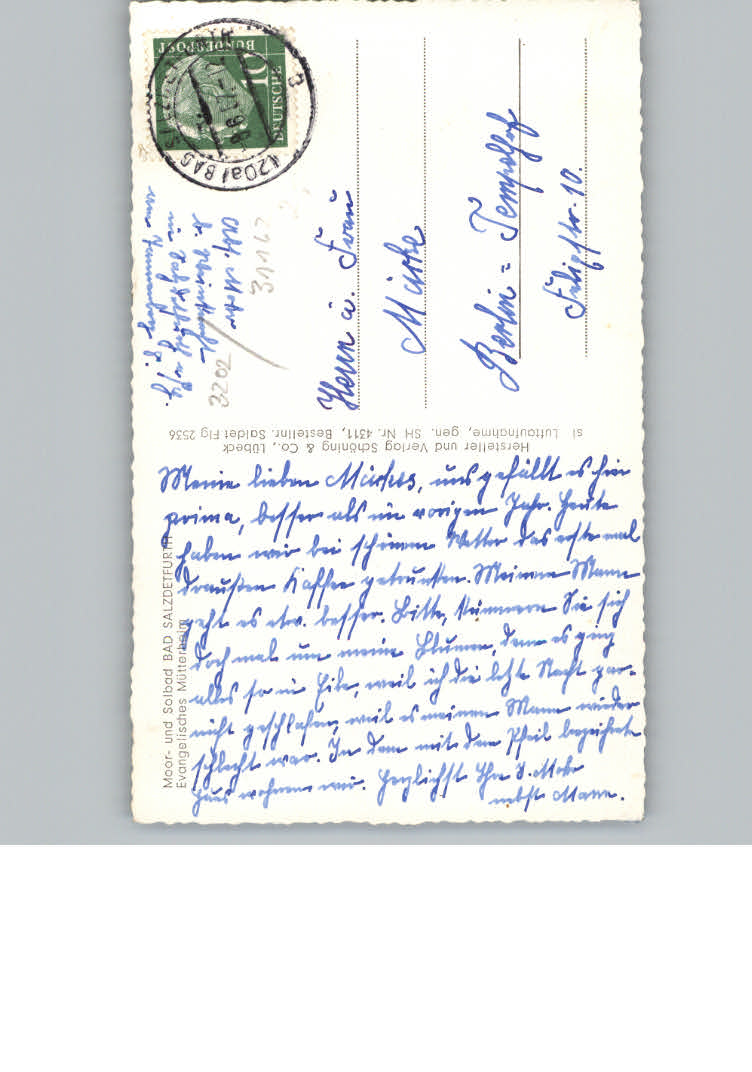 Moor- und Solbad BAD SALZDETFURTH
Evangelisches Mütterheim
Meine lieben Märkes, uns gefällt es hier
prima, besser als im vorigen Jahr. Heute
haben wir bei schönem Wetter das erste mal
draußen Kaffee getrunken. Meinem Mann
geht es etw. besser. Bitte, kümmern Sie sich
doch mal um meine Blumen, denn es ging
alles so in Eile, weil ich die letzte Nacht gar
nicht geschlafen, weil es meinem Mann wieder
schlecht war. In dem mit dem Pfeil bezeichnete
Haus wohnen wir. Herzlichst Ihre J. Mohr
nebst Mann.
Hersteller und Verlag Schöning & Co., Lübeck
sl Luftaufnahme, gen. SH Nr. 4311, Bestellnr. Saldet Flg 2536
Abs. Mohr
in Salzdetfurth
3202
31163
DEUTSCHE
BUNDESPOST
10
(20a) BAD SALZDETFURTH
Herrn u. Frau
Märke
Berlin = Tempelhof
10.